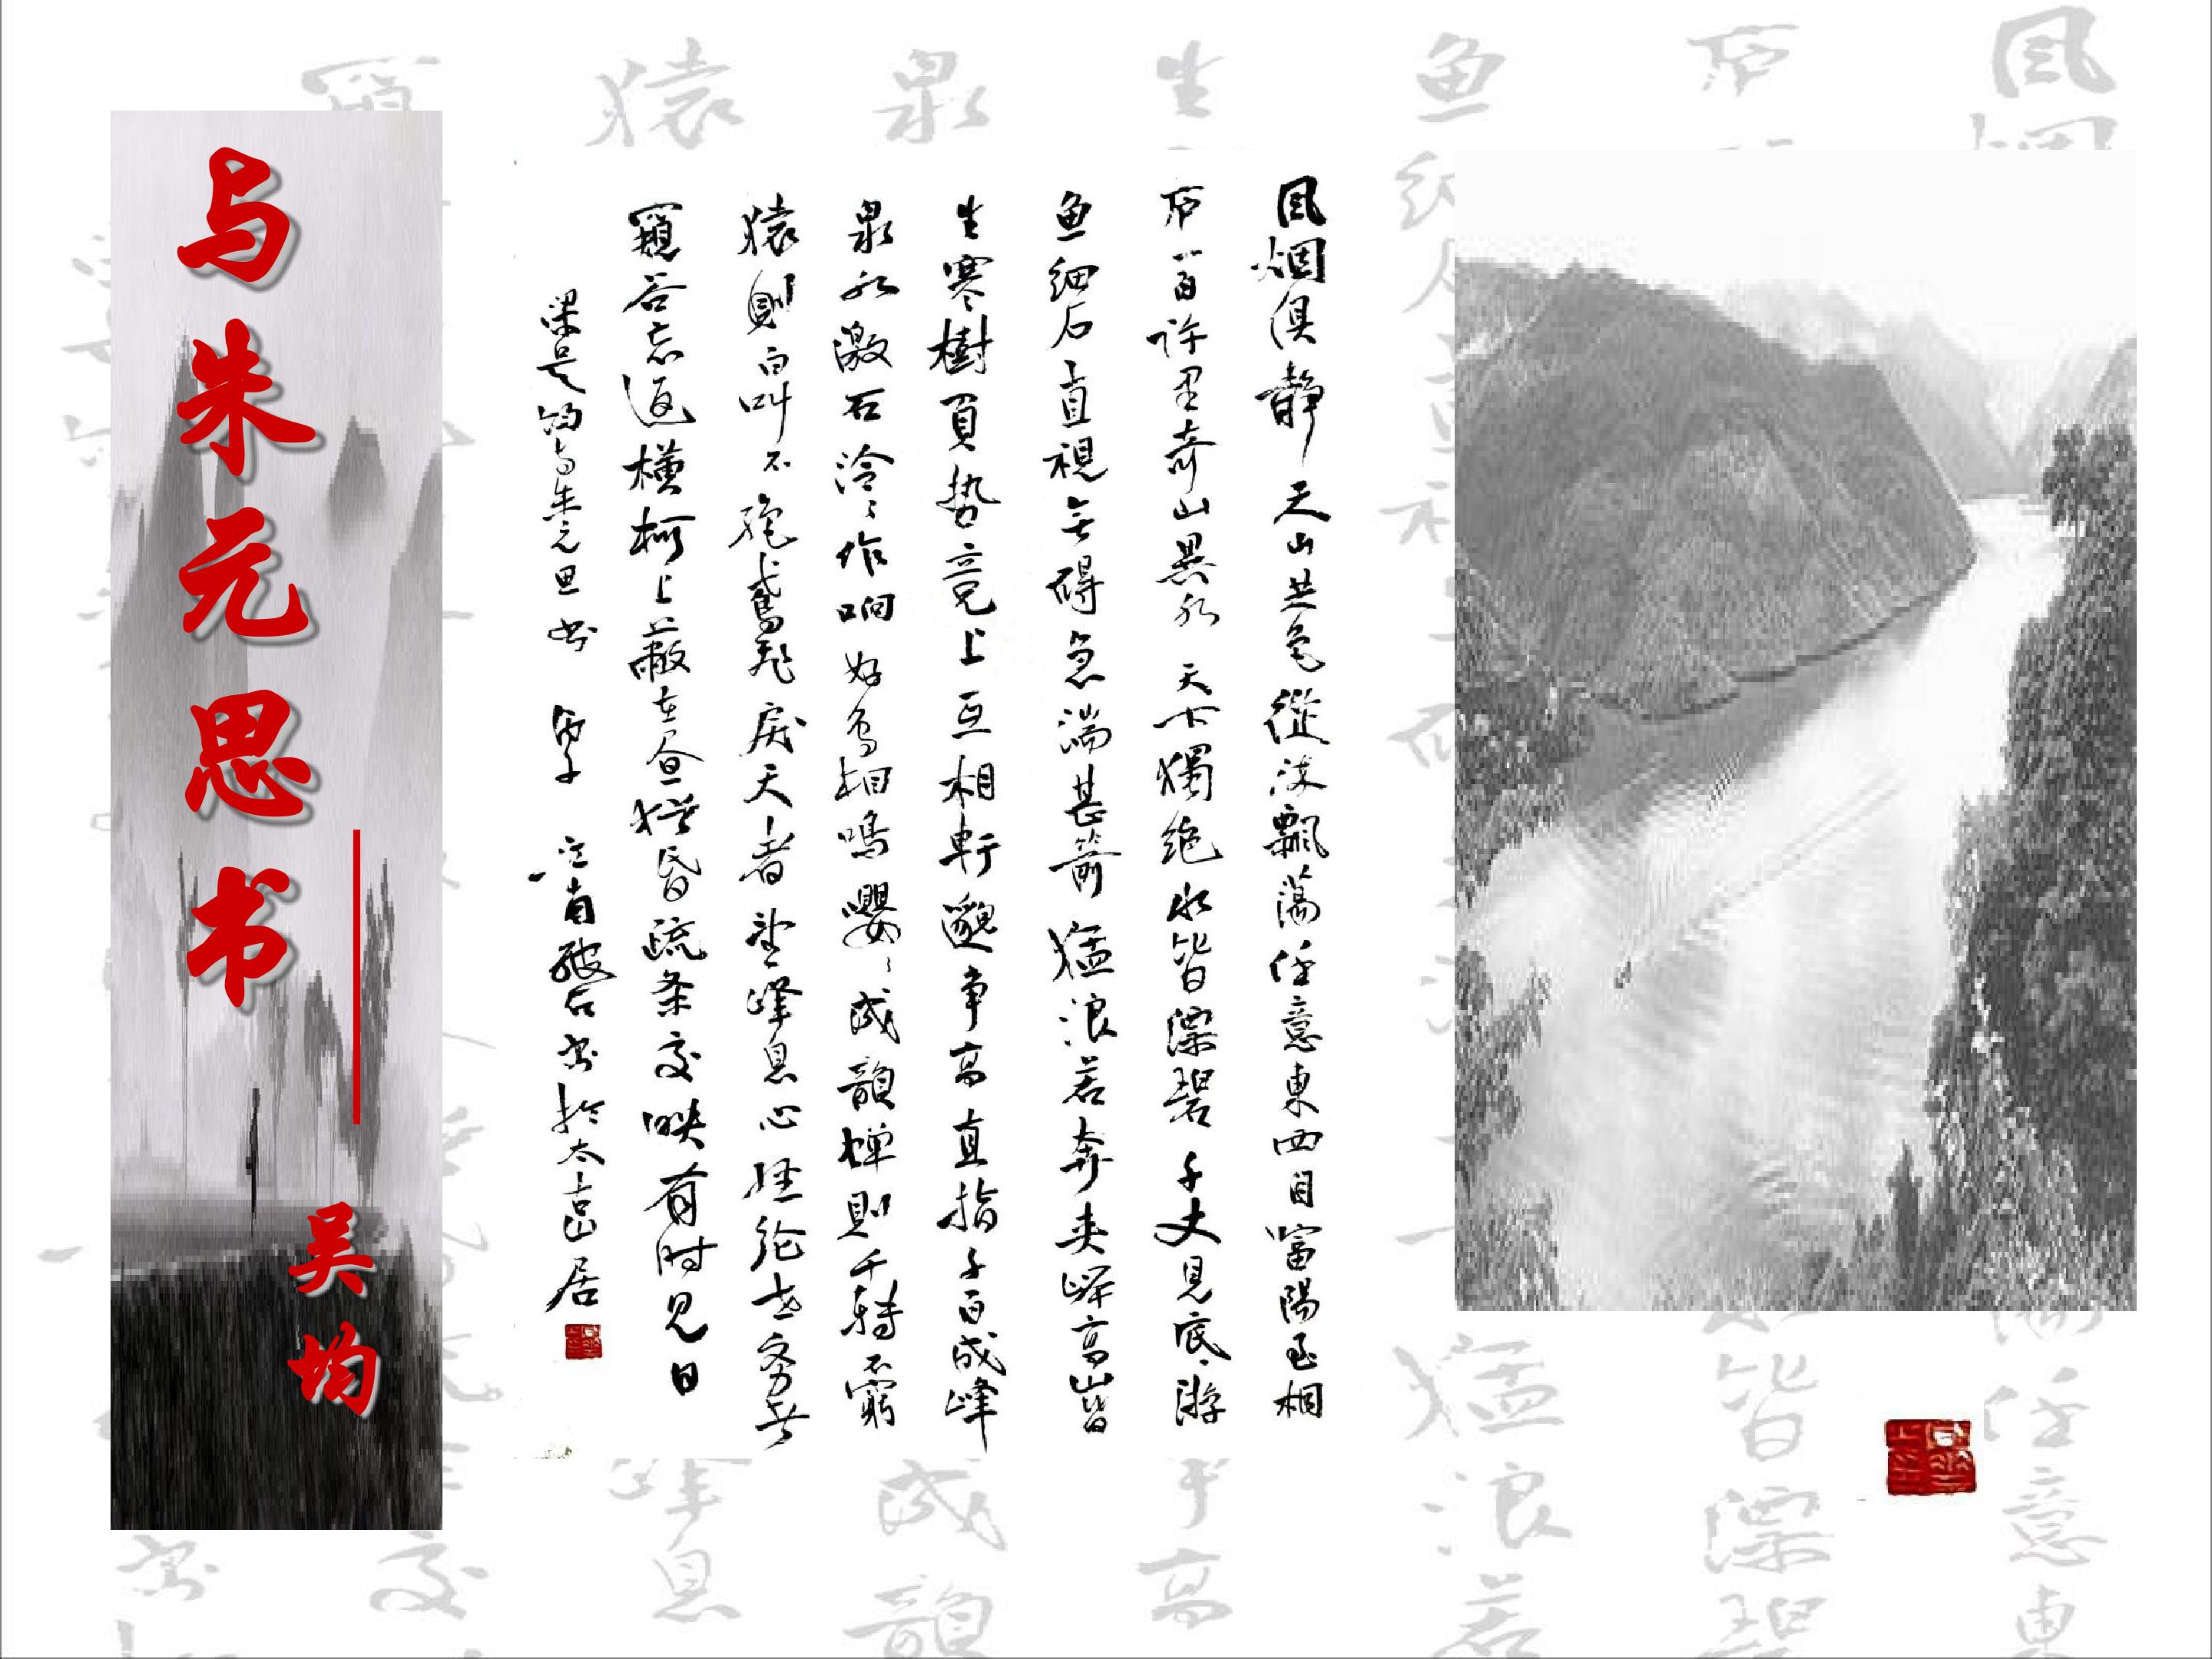 与朱元思书
——吴均
風烟俱静天山共色從流飄蕩任意東西自富陽至桐
庐一百许里奇山異水天下獨绝水皆漂碧千丈見底游
鱼细石直視无碍急湍甚箭猛浪若奔夹岸高山皆
生寒樹負势竞上互相軒邈争高直指千百成峰
泉水激石泠泠作响好鸟相鳴嚶嚶成韻蝉則千转不窮
猿則百叫不绝鸢飛戾天者望峰息心经纶世务者
窺谷忘返横柯上蔽在昼犹昏疏条交映有时见日
梁吴均与朱元思书 书於太古山居